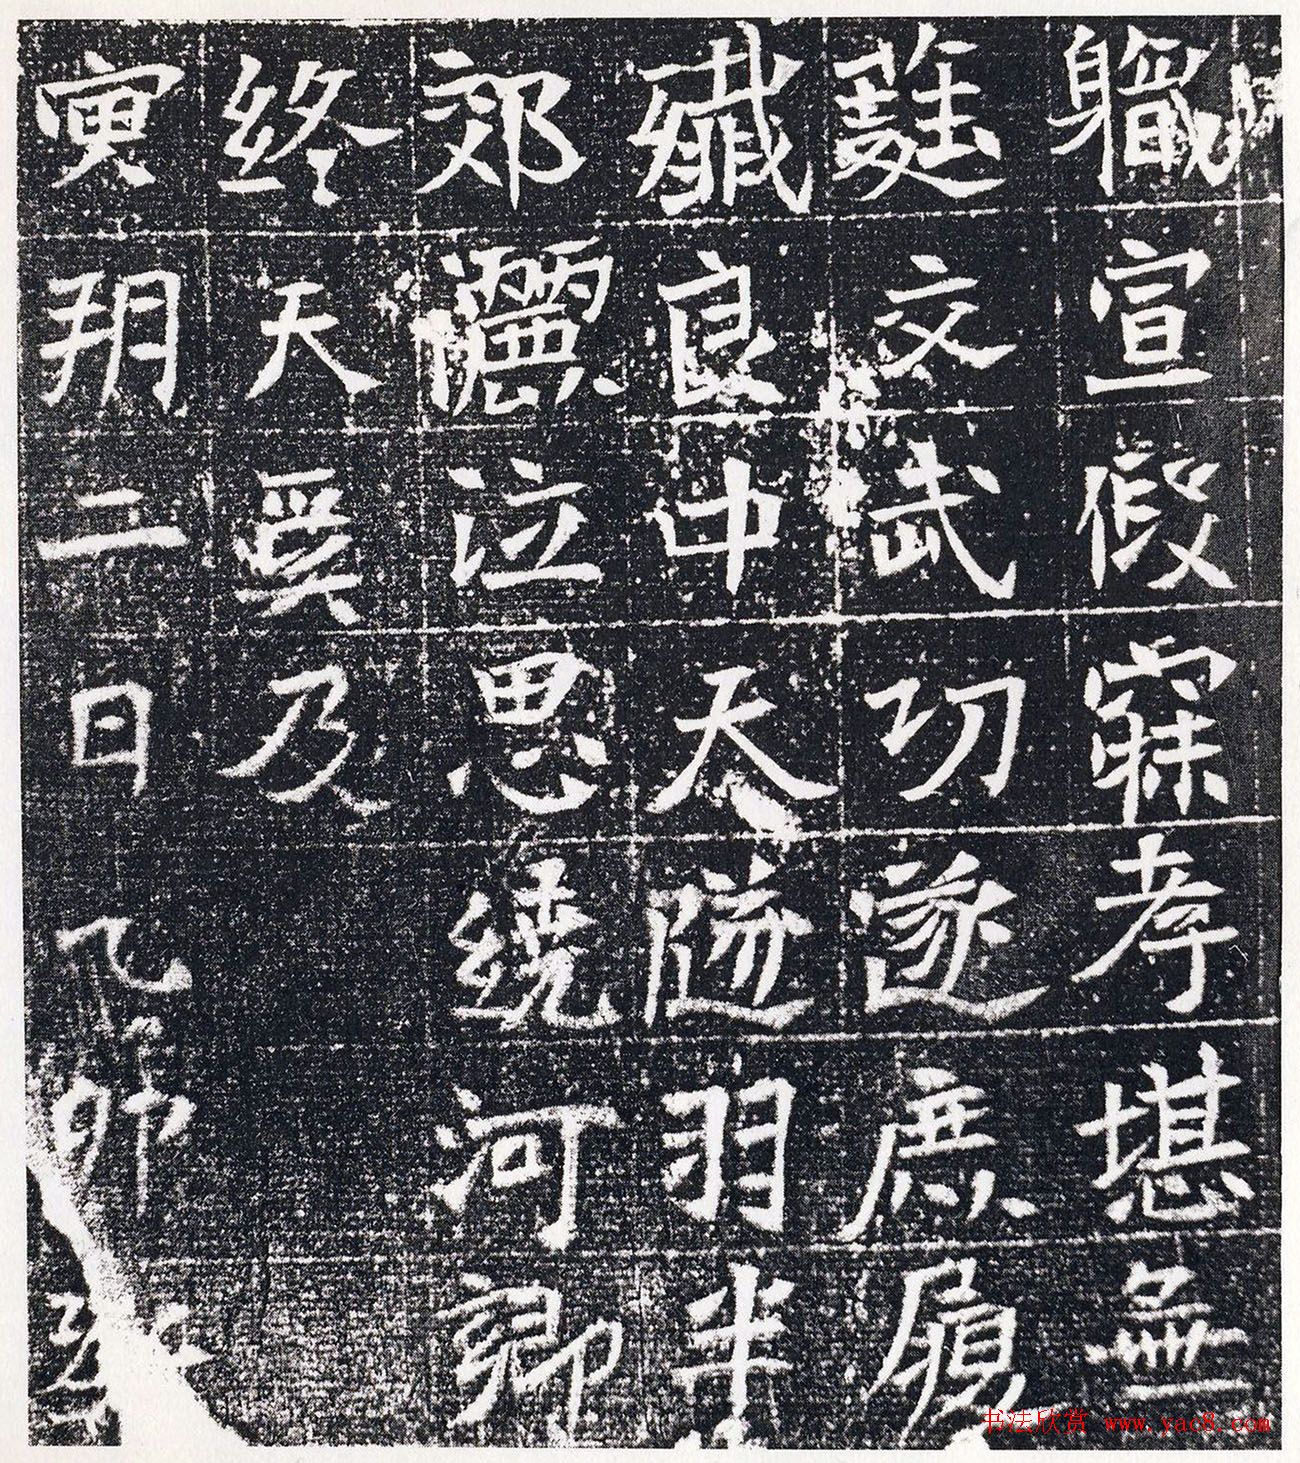 軄宣假寐孝堪無
文武功遂庶
殲良中天隧羽半
郊灑泣思繞河卿
終天奚及
寅朔二日乙卯
书法欣赏 www.yac8.com